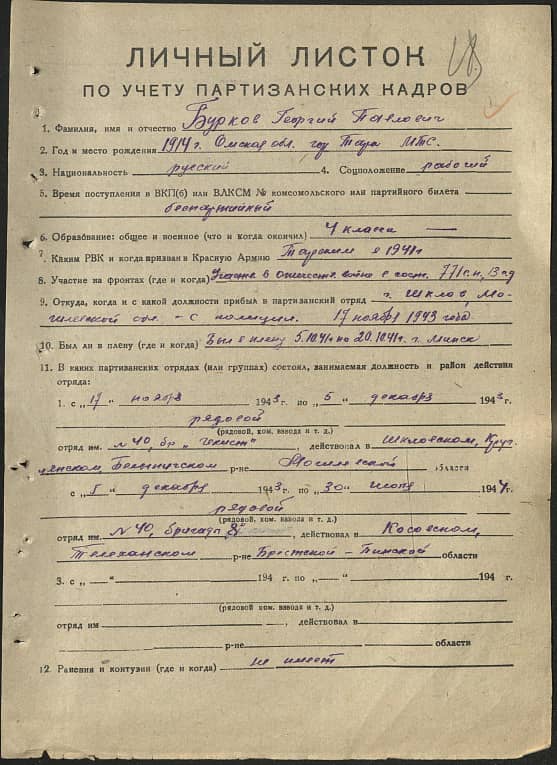 18.
ЛИЧНЫЙ ЛИСТОК
ПО УЧЕТУ ПАРТИЗАНСКИХ КАДРОВ
1. Фамилия, имя и отчество Бурков Георгий Павлович
2. Год и место рождения 1914 г. Омская обл. гор Тара МТС.
3. Национальность русский 4. Соцположение рабочий
5. Время поступления в ВКП(б) или ВЛКСМ № комсомольского или партийного билета
беспартийный
6. Образование: общее и военное (что и когда окончил) 4 класса —
7. Каким РВК и когда призван в Красную Армию Тарским в 1941 г
8. Участие на фронтах (где и когда) Участв. в отечеств. войне в сост. 771 с.п.,
9. Откуда, когда и с какой должности прибыл в партизанский отряд г. Шклов, Мо-
гилевской обл. - с полиции. 17 ноября 1943 года.
10. Был ли в плену (где и когда) Был в плену 5.10.41 г по 20.10.41 г. г. Минск
11. В каких партизанских отрядах (или группах) состоял, занимаемая должность и район действия
отряда:
1. с „17“ ноября 1943 г. по „5“ декабря 1943
рядовой
(рядовой, ком. взвода и т. д.)
отряд им. № 40, бр „Чекист“ действовал в Шкловском, Круг
лянском, Белыничском р-не Могилевской области
с „5“ декабря 1943 г. по „30“ июля 1944 г.
рядовой
(рядовой, ком. взвода и т. д.)
отряд им. № 40, бригада 8 действовал в Косовском,
Телеханском р-не Брестской - Пинской области
3. с „—“ 194 г. по „—“ 194 г.
(рядовой ком. взвода и т. д.)
отряд им действовал в
р-не области
12. Ранения и контузии (где и когда) не имеет